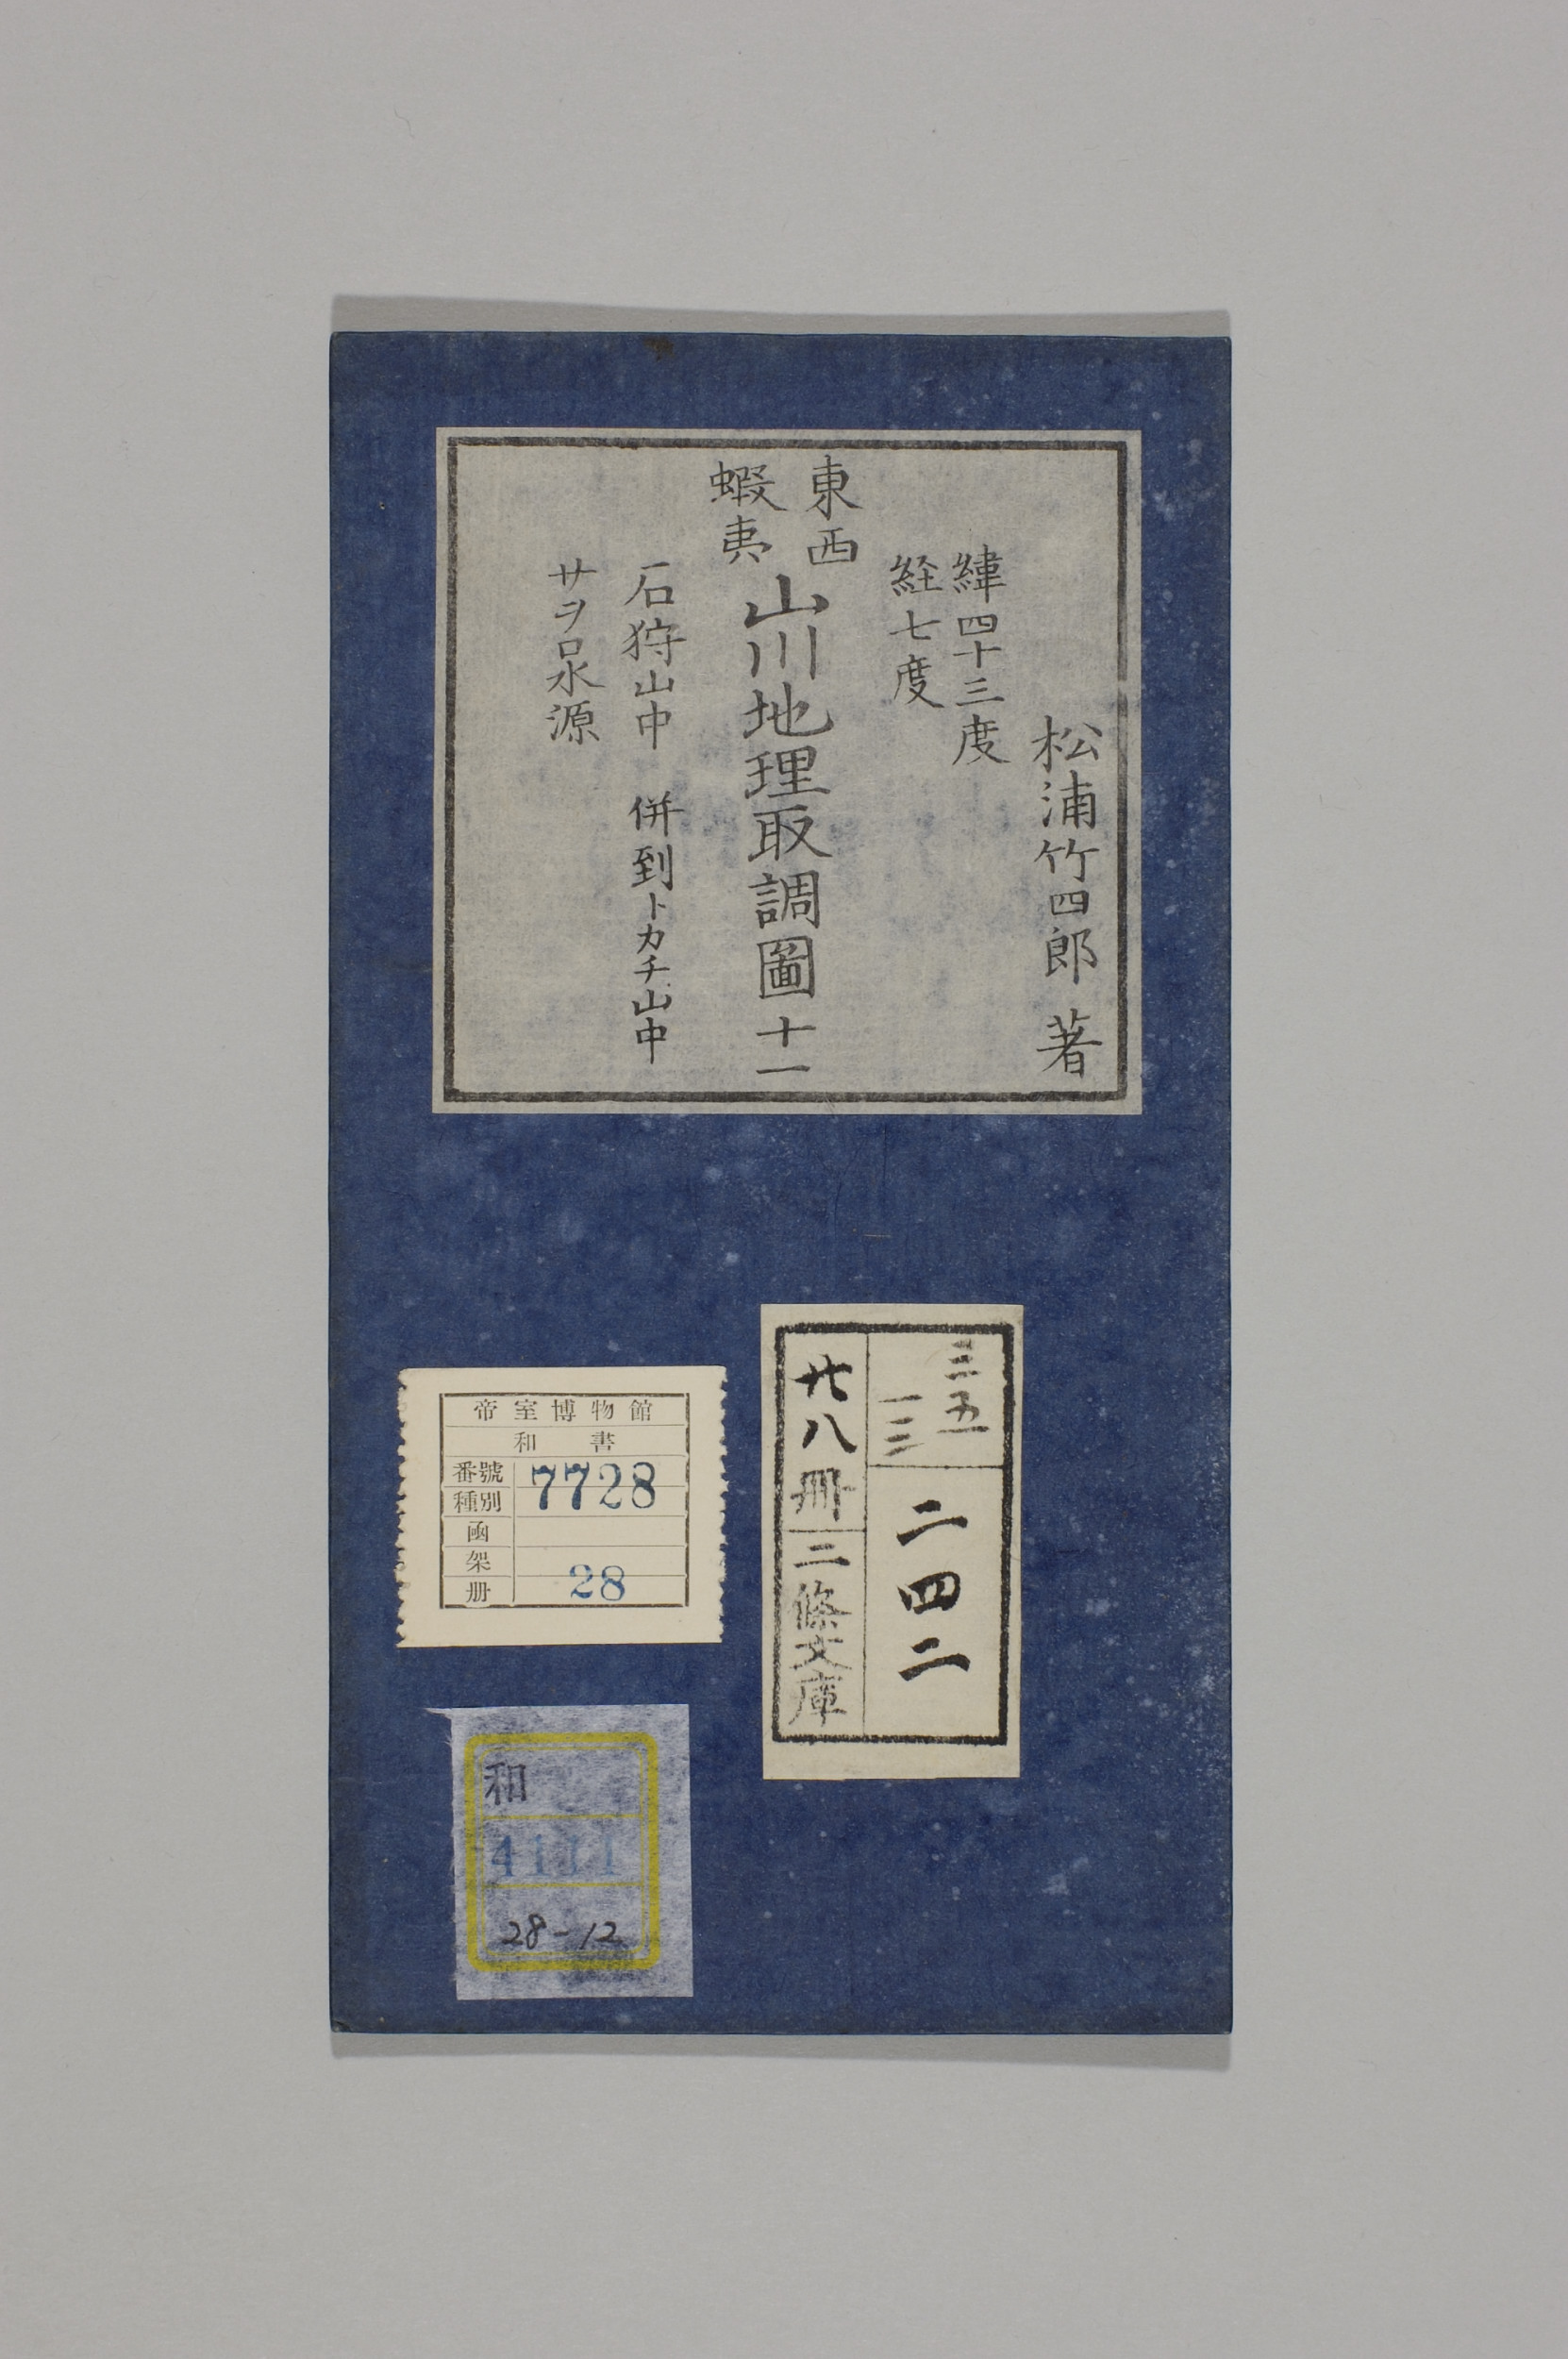 松浦竹四郎 著
緯四十三度
経七度
東西
蝦夷
山川地理取調圖 十一
石狩山中 併到トカチ山中
サヲロ水源
三五
一三
二四二
廿八冊
三條文庫
帝室博物館
和書
番號 7728
種別
函
架
册 28
和
4111
28-12